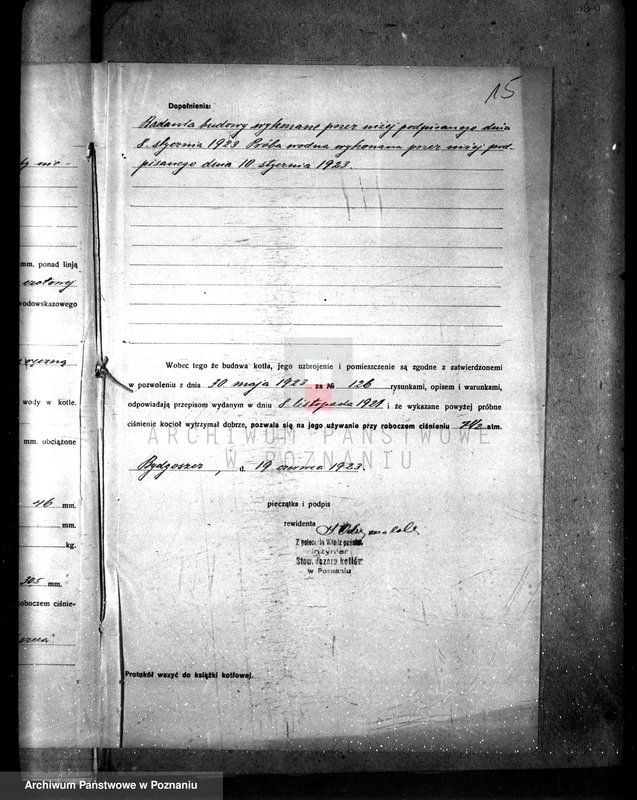 15
Dopełnienia:
Badania budowy wykonane przez niżej podpisanego dnia
8. stycznia 1923 Próba wodna wykonana przez niżej pod-
pisanego dnia 10. stycznia 1923.
mm. ponad linją
wodowskazowego
wody w kotle.
mm. obciążone
46 mm.
mm.
kg.
305 mm.
roboczem ciśnie-
Wobec tego że budowa kotła, jego uzbrojenie i pomieszczenie są zgodne z zatwierdzonemi
w pozwoleniu z dnia 30 maja 1923 za № 126 rysunkami, opisem i warunkami,
odpowiadają przepisom wydanym w dniu 8. listopada 1921 i że wykazane powyżej próbne
ciśnienie kocioł wytrzymał dobrze, pozwala się na jego używanie przy roboczem ciśnieniu 7½ atm.
ARCHIWUM PAŃSTWOWE
W POZNANIU
Bydgoszcz, d. 19 czerwca 1923.
pieczątka i podpis
rewidenta
Z polecenia Władz państw.
Inżynier
Stow. dozoru kotłów
w Poznaniu
Protokół wszyć do książki kotłowej.
Archiwum Państwowe w Poznaniu